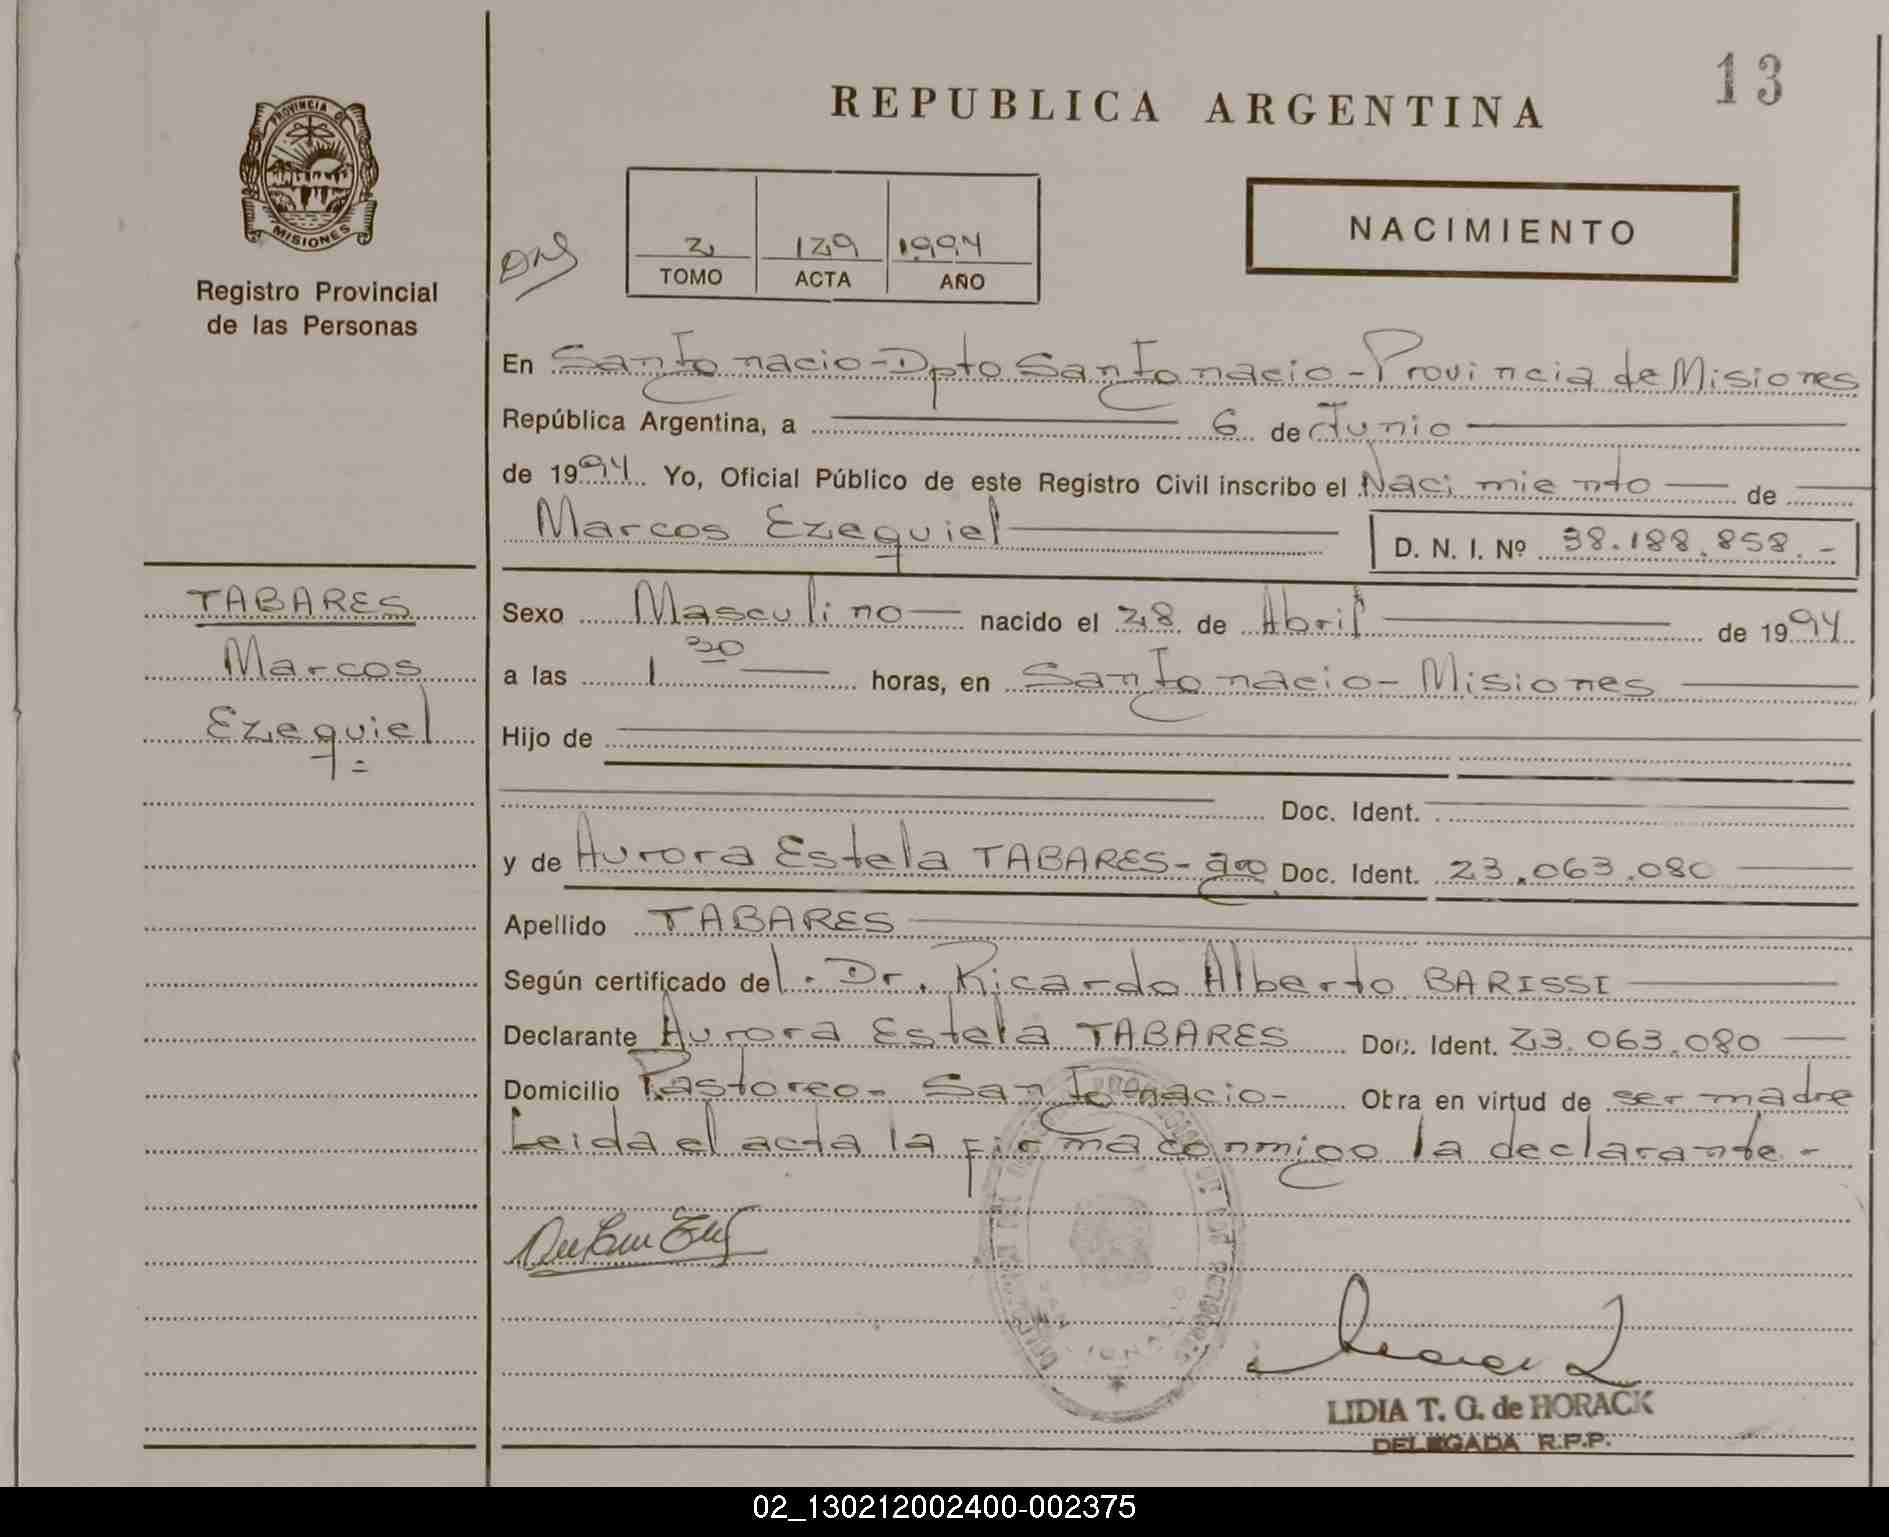 13
REPUBLICA ARGENTINA
PROVINCIA DE
MISIONES
NACIMIENTO
2 129 1994
TOMO ACTA AÑO
Registro Provincial
de las Personas
En San Ignacio - Dpto San Ignacio - Provincia de Misiones
República Argentina, a 6 de Junio
de 1994 Yo, Oficial Público de este Registro Civil inscribo el Nacimiento de
Marcos Ezequiel D. N. I. Nº 38.188.858.-
TABARES
Marcos
Ezequiel =
Sexo Masculino nacido el 28 de Abril de 1994
a las 1 30 horas, en San Ignacio - Misiones
Hijo de
Doc. Ident.
y de Aurora Estela TABARES - Doc. Ident. 23.063.080
Apellido TABARES
Según certificado del. Dr. Ricardo Alberto BARISSI
Declarante Aurora Estela TABARES Doc. Ident. 23.063.080
Domicilio Pastoreo - San Ignacio - Obra en virtud de ser madre
Leida el acta la firma conmigo la declarante -
LIDIA T. G. de HORACK
DELEGADA R.P.P.
02_130212002400-002375